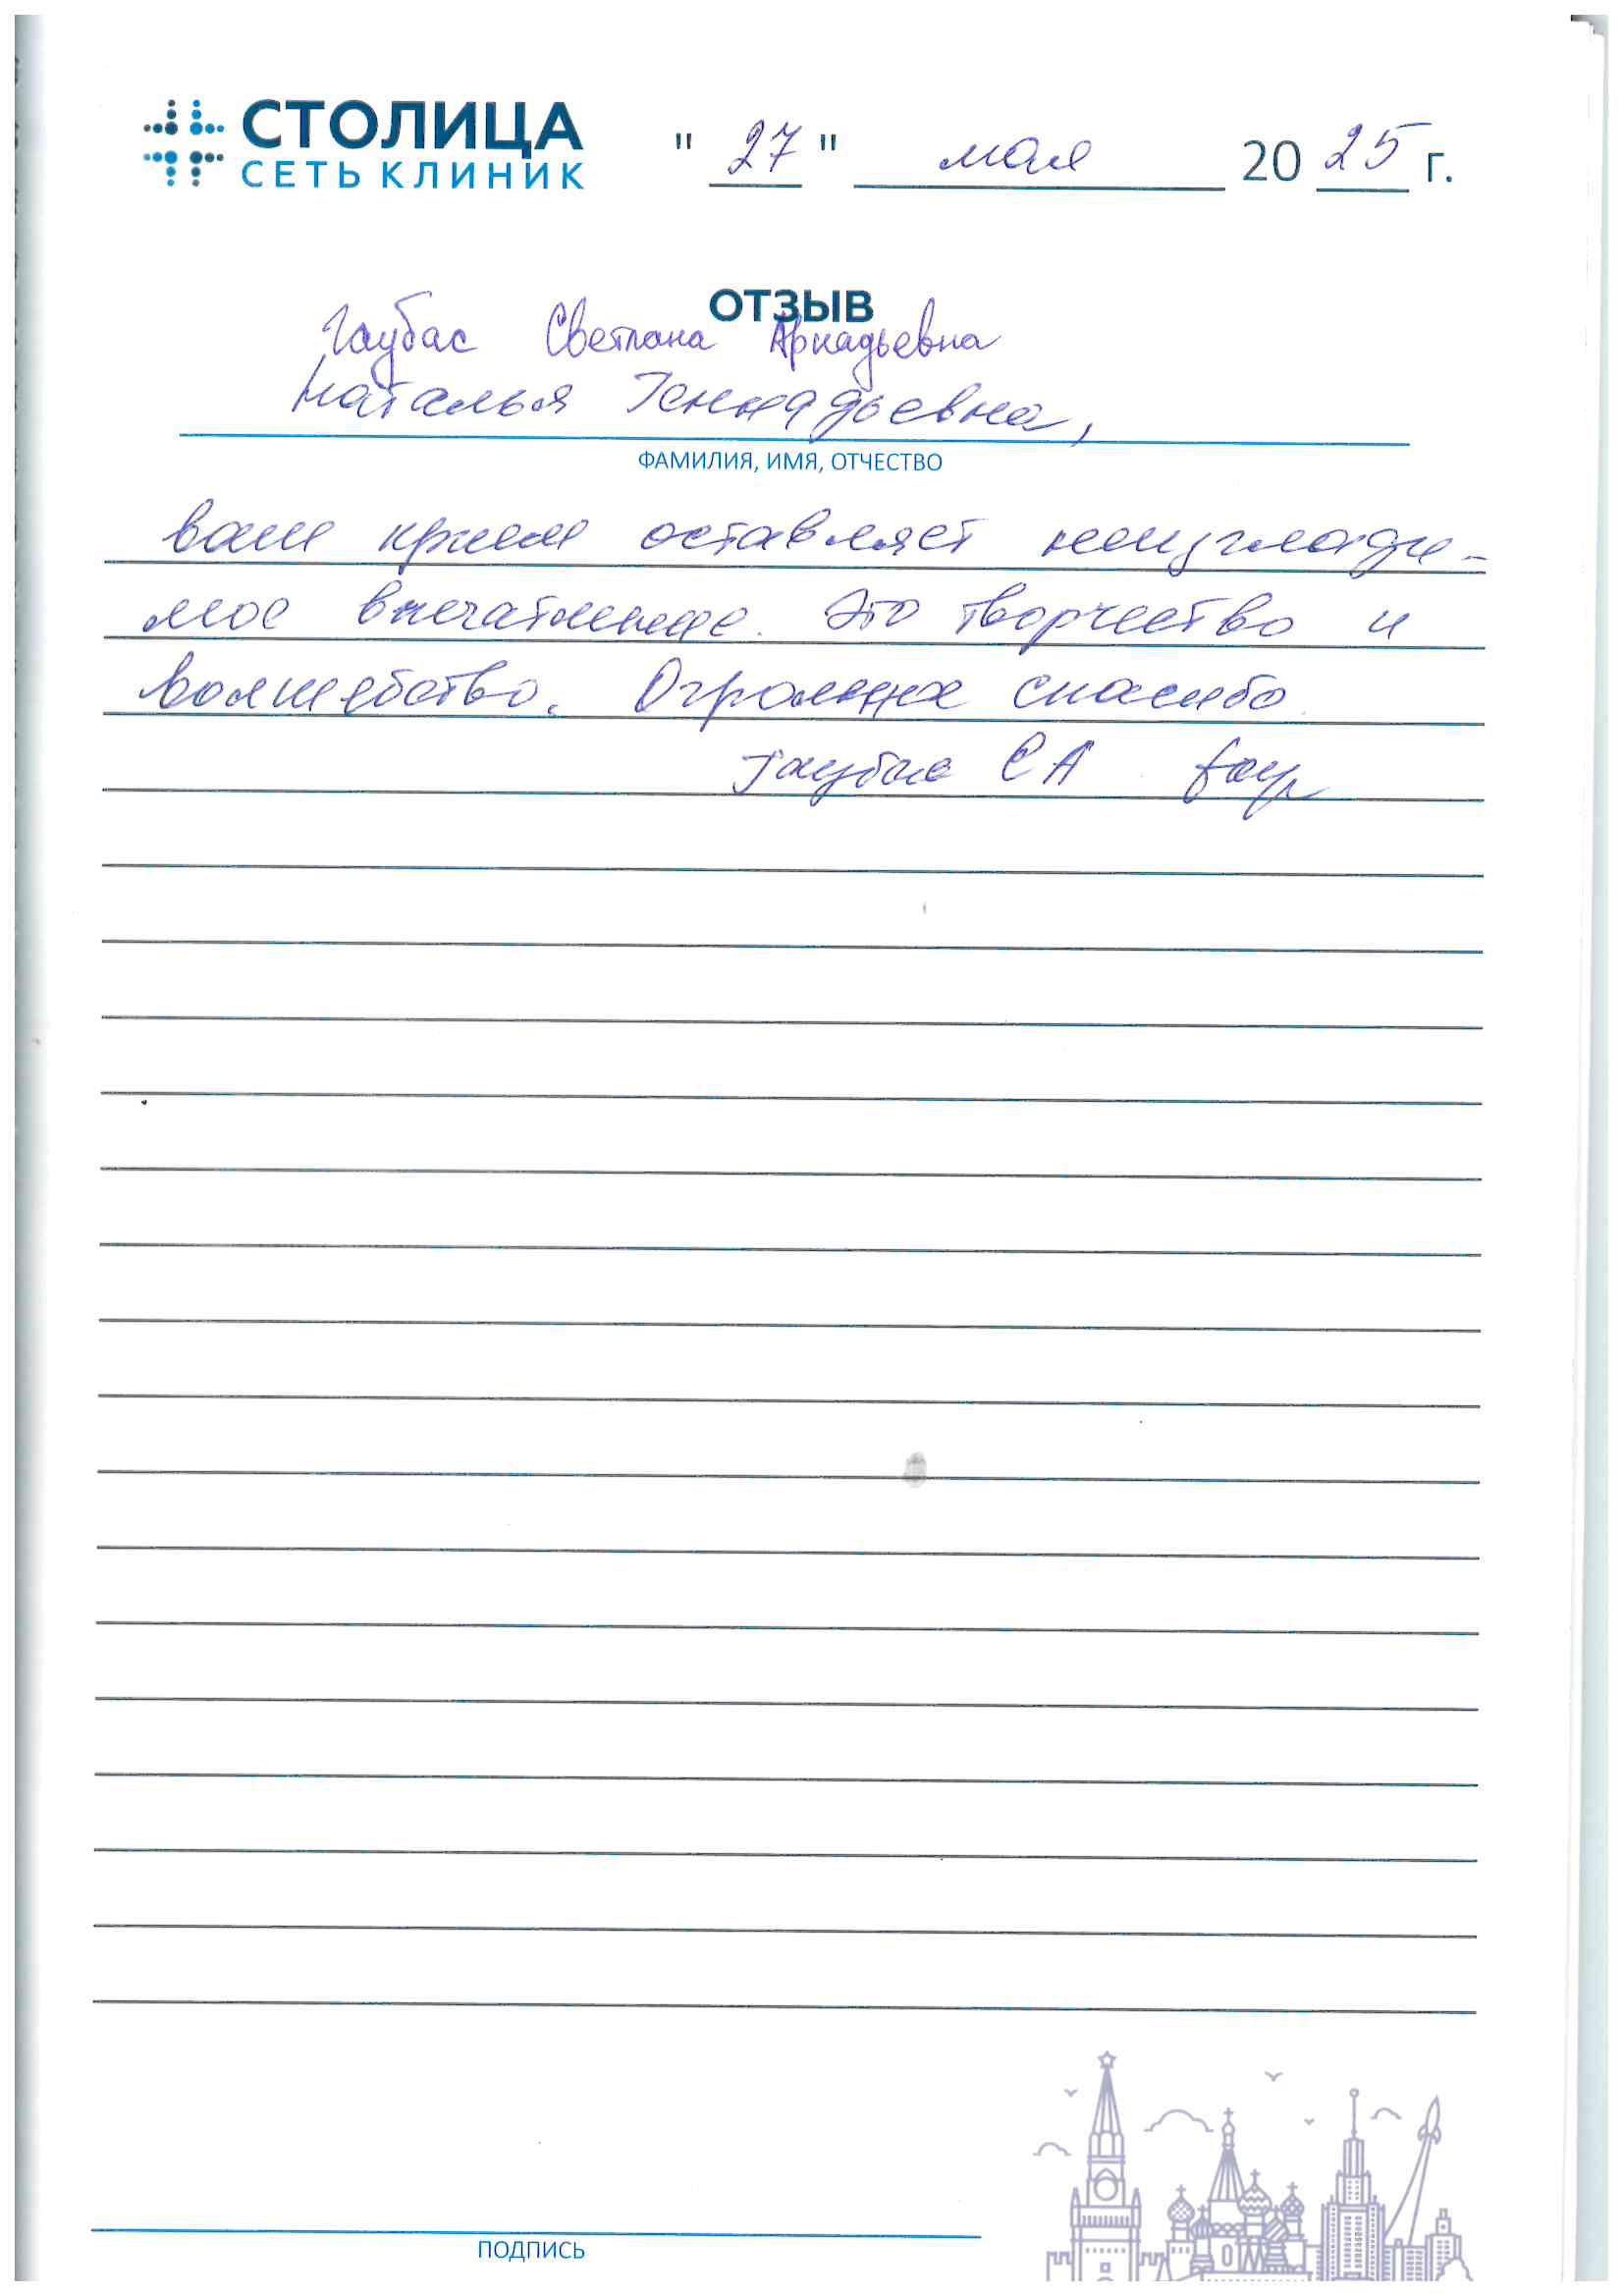 СТОЛИЦА
СЕТЬ КЛИНИК
" 27 " мая 20 25 г.
ОТЗЫВ
Гаубас Светлана Аркадьевна
Наталья Геннадьевна,
ФАМИЛИЯ, ИМЯ, ОТЧЕСТВО
ваш прием оставляет неизглади-
мое впечатление. Это творчество и
волшебство. Огромное спасибо.
Гаубас С А
ПОДПИСЬ